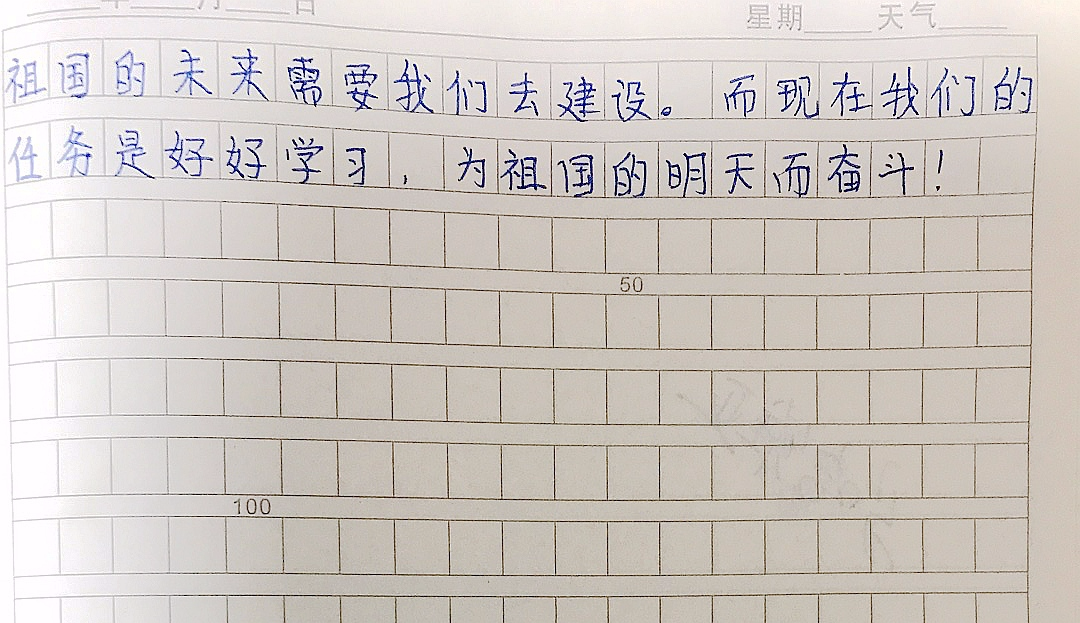 年 月 日 星期 天气
祖国的未来需要我们去建设。而现在我们的
任务是好好学习，为祖国的明天而奋斗！
50
100